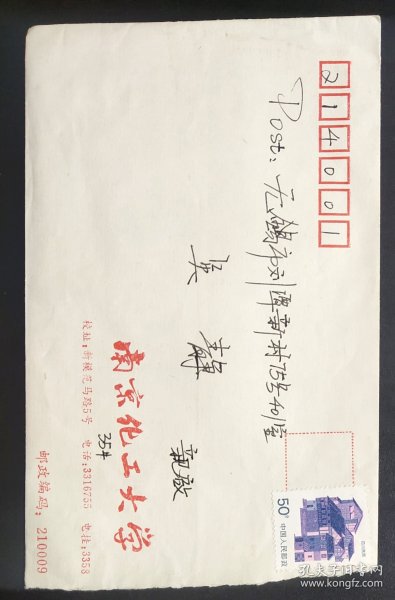 214001
Post: 无锡市刘潭新村75号401室
吴
亲启
南京化工大学
35#
校址:新模范马路5号 电话:3316755 电挂:3358
邮政编码:210009
50分
中国人民邮政
孔夫子旧书网
www.kongfz.com